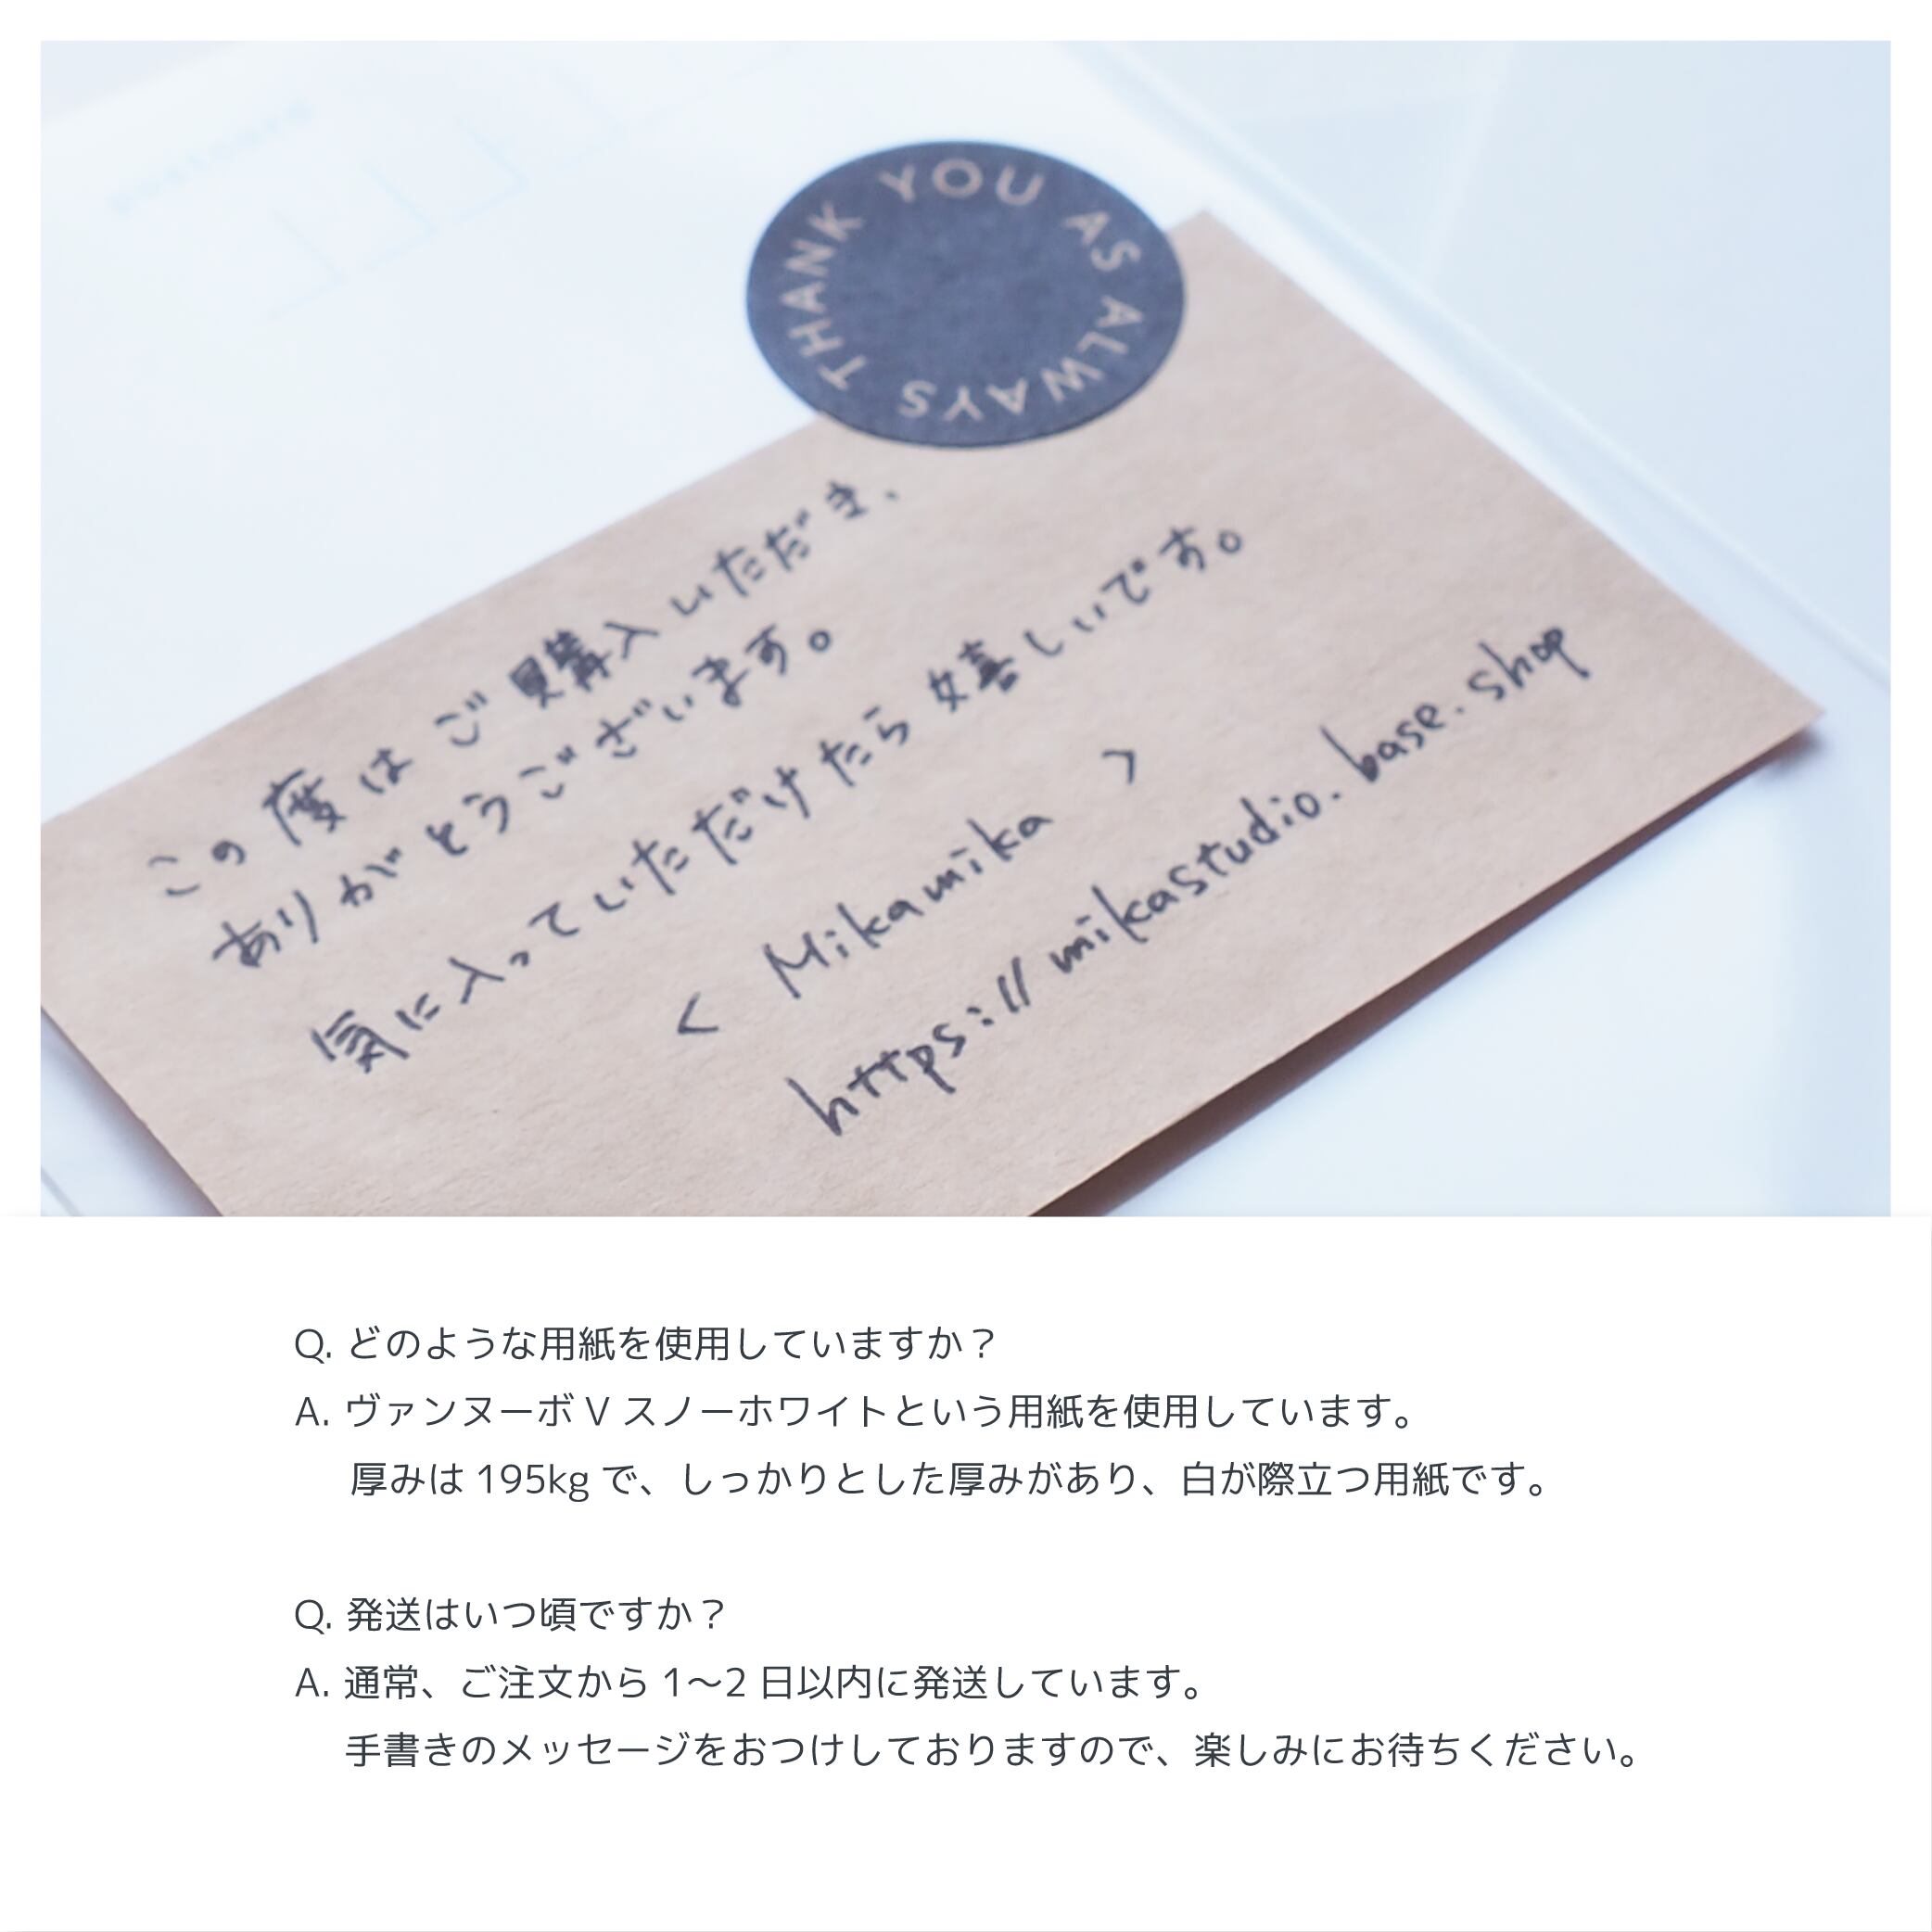 THANK YOU AS ALWAYS
この度はご購入いただき、
ありがとうございます。
気に入っていただけたら嬉しいです。
< Mikamika >
https://mikastudio.base.shop
Q. どのような用紙を使用していますか?
A. ヴァンヌーボ V スノーホワイトという用紙を使用しています。
厚みは 195kg で、しっかりとした厚みがあり、白が際立つ用紙です。
Q. 発送はいつ頃ですか?
A. 通常、ご注文から 1〜2 日以内に発送しています。
手書きのメッセージをおつけしておりますので、楽しみにお待ちください。